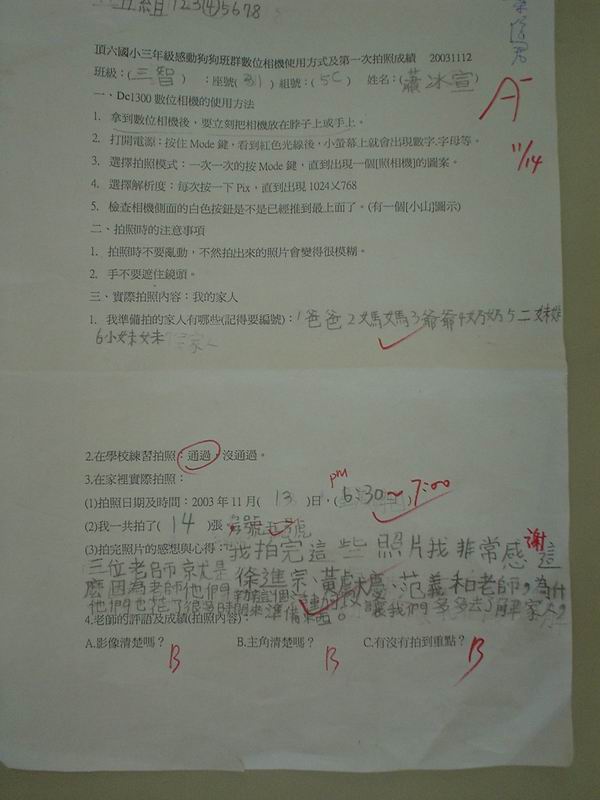 五組 123(4)5678
頂六國小三年級感動狗狗班群數位相機使用方式及第一次拍照成績 20031112
班級:(三智) :座號(31)組號:(5C) 姓名:(蕭冰宣)
A-
11/14
一、Dc1300 數位相機的使用方法
1. 拿到數位相機後,要立刻把相機放在脖子上或手上。
2. 打開電源:按住 Mode 鍵,看到紅色光線後,小螢幕上就會出現數字.字母等。
3. 選擇拍照模式:一次一次的按 Mode 鍵,直到出現一個[照相機]的圖案。
4. 選擇解析度:每次按一下 Pix,直到出現 1024乂768
5. 檢查相機側面的白色按鈕是不是已經推到最上面了。(有一個[小山]圖示)
二、拍照時的注意事項
1. 拍照時不要亂動,不然拍出來的照片會變得很模糊。
2. 手不要遮住鏡頭。
三、實際拍照內容:我的家人
1. 我準備拍的家人有哪些(記得要編號):1爸爸2媽媽3爺爺4奶奶5二妹妹
6小妹妹
2.在學校練習拍照:通過,沒通過。
3.在家裡實際拍照:
(1)拍照日期及時間:2003 年 11 月( 13 )日,(pm 6:30~7:00)
(2)我一共拍了( 14 )張
(3)拍完照片的感想與心得:我拍完這些照片我非常感謝這
三位老師就是徐進宗、黃獻慶、范義和老師,為什
麼因為老師他們讓我們多多去了解家人,
他們也花了很多時間來準備東西。
4.老師的評語及成績(拍照內容):
A.影像清楚嗎? B B.主角清楚嗎? B C.有沒有拍到重點? B